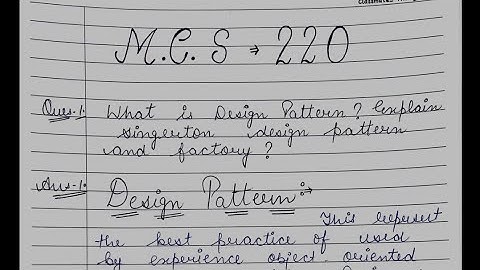 M.C.S → 220
Ques-1. What is Design Pattern? Explain
singerton design pattern
and factory?
Ans-1. Design Pattern:→
This represent
the best practice of used
by experience object oriented